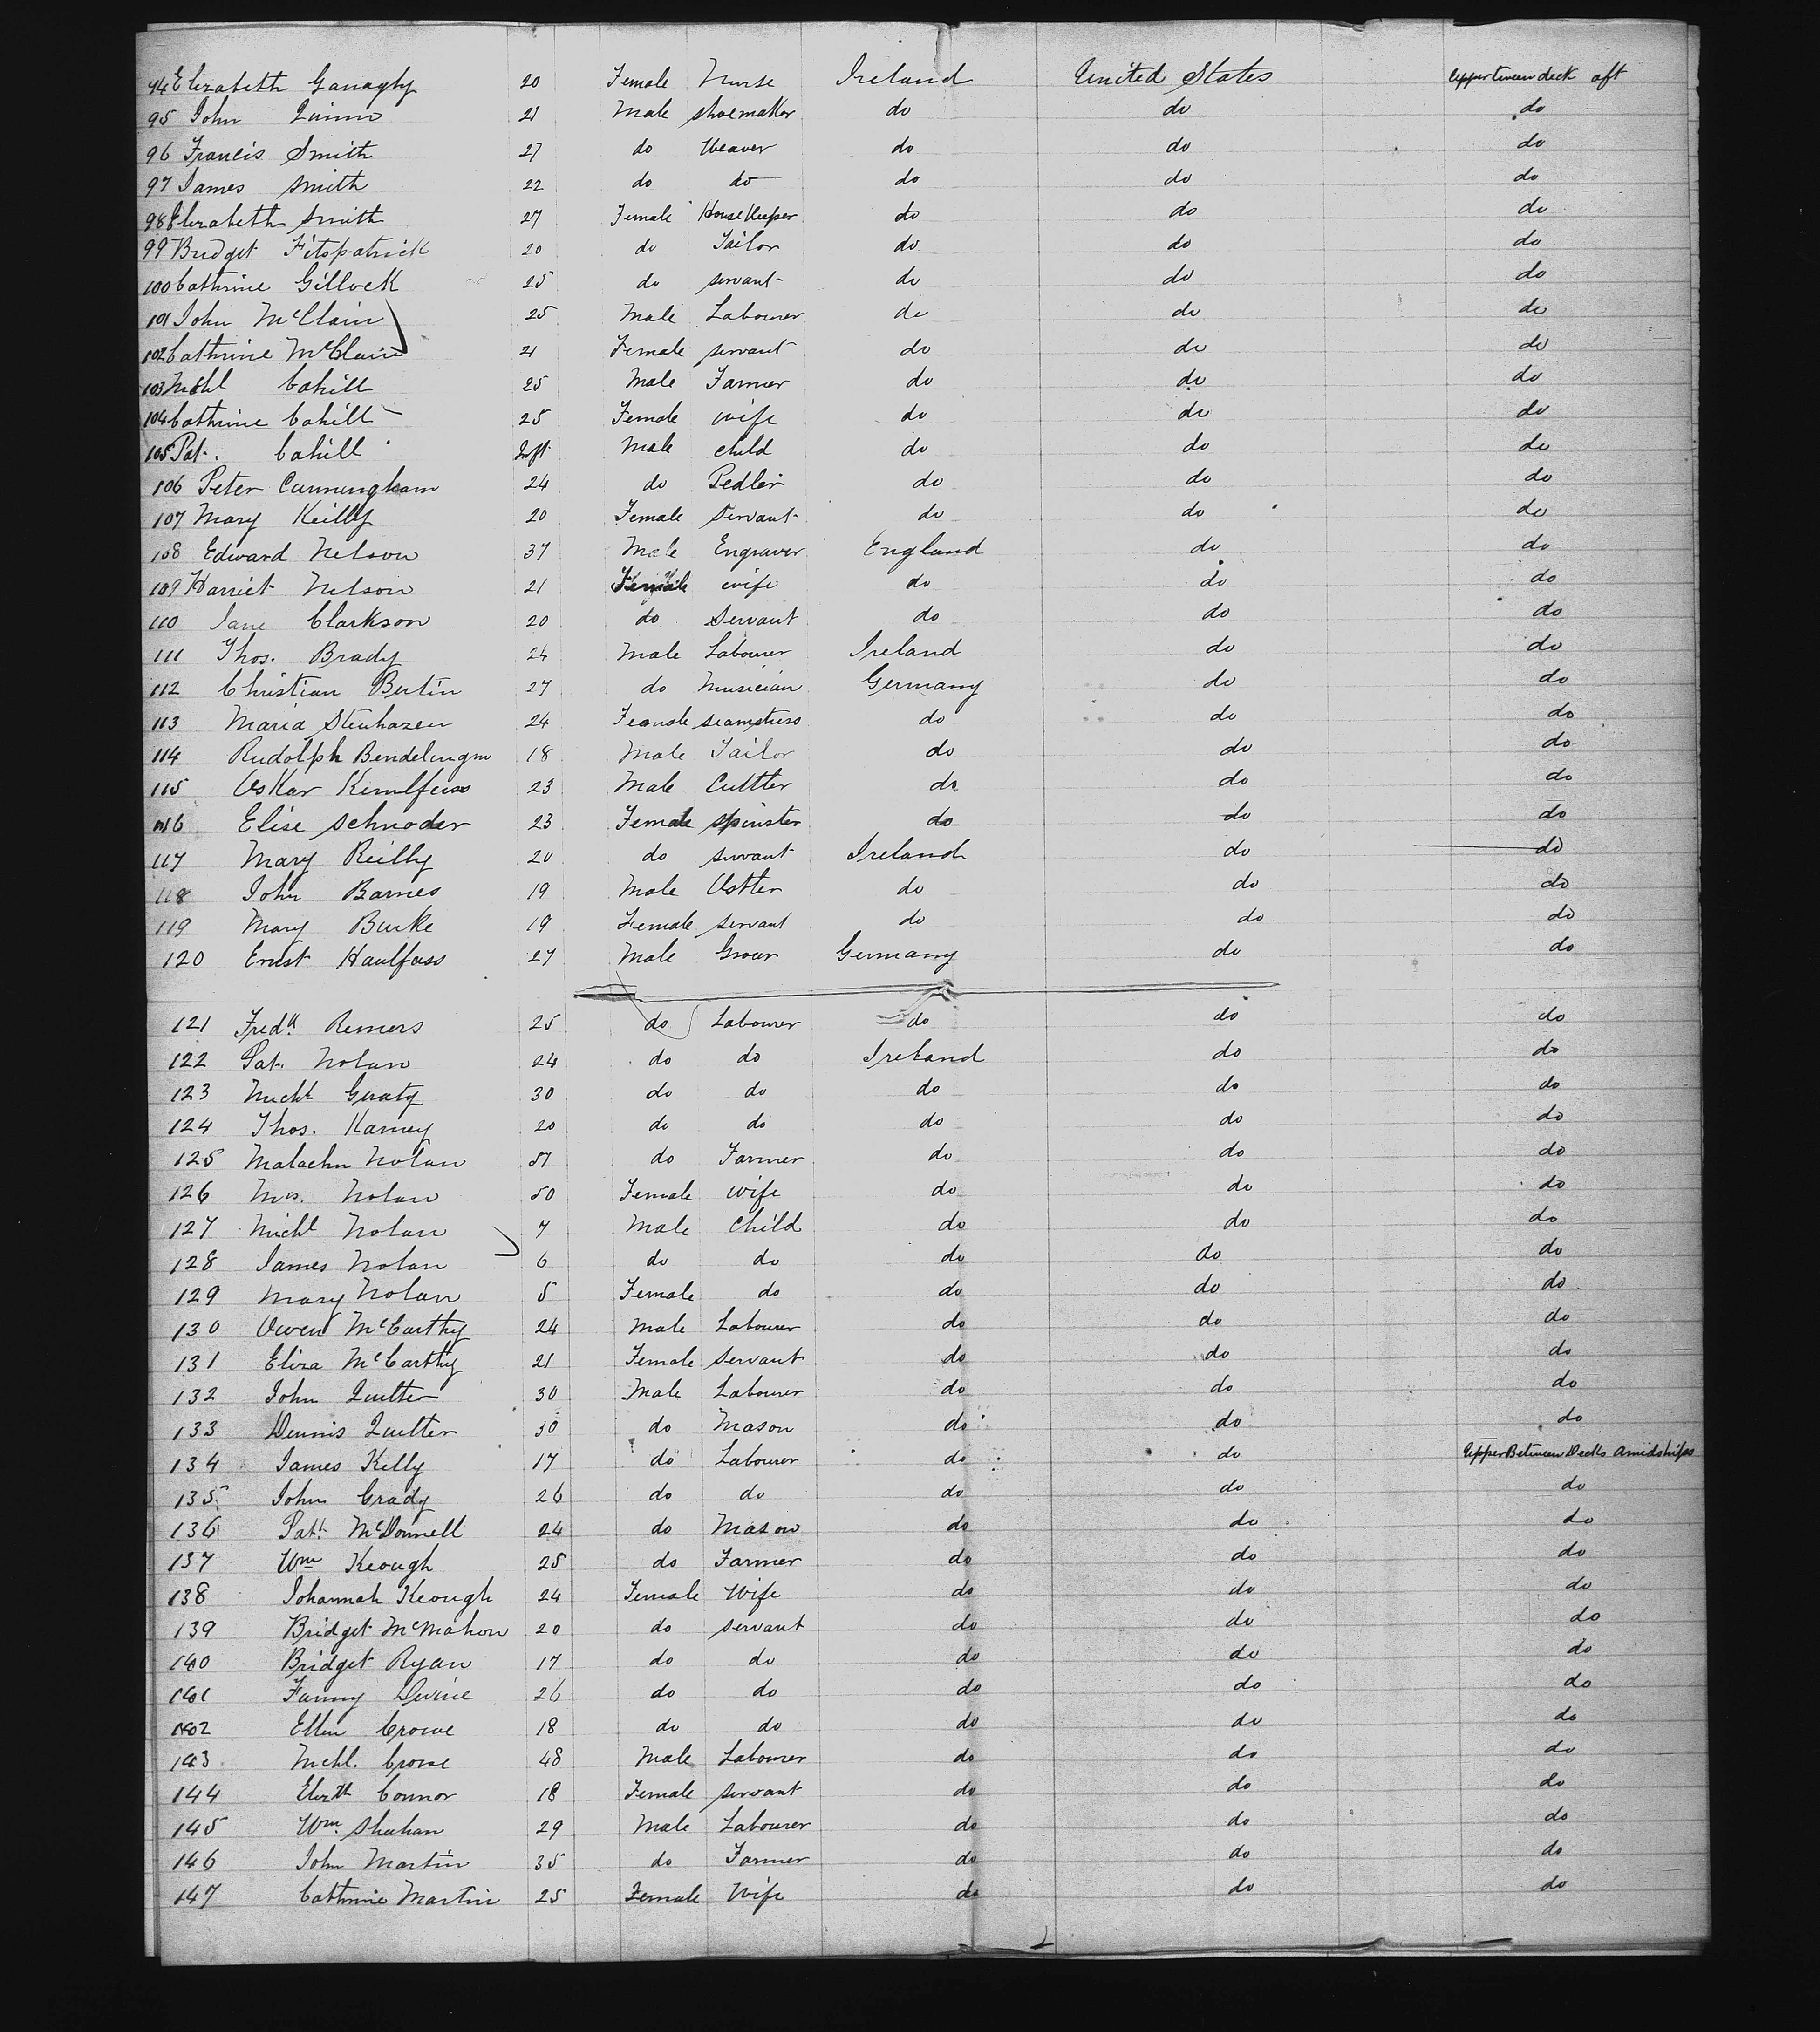 94 Elizabeth Ganaghy 20 Female Nurse Ireland United States Upper tween deck aft
95 John Quinn 21 Male shoemaker do do do
96 Francis Smith 27 do Weaver do do do
97 James Smith 22 do do do do do
98 Elizabeth Smith 27 Female HouseKeeper do do do
99 Bridget Fitspatrick 20 do Tailor do do do
100 Cathrine Gillock 25 do servant do do do
101 John McClain 25 Male Labourer do do do
102 Cathrine McClain 21 Female servant do do do
103 Michl Cahill 25 Male Farmer do do do
104 Cathrine Cahill 25 Female wife do do do
105 Pat. Cahill Inft Male child do do do
106 Peter Cunningham 24 do Pedler do do do
107 Mary Reilly 20 Female Servant do do do
108 Edward Nelson 37 Male Engraver England do do
109 Harriet Nelson 21 Female wife do do do
110 Jane Clarkson 20 do Servant do do do
111 Thos. Brady 24 Male Labourer Ireland do do
112 Christian Bertin 27 do Musician Germany do do
113 Maria Stenhazen 24 Female seamstress do do do
114 Rudolph Bendelingm 18 Male Tailor do do do
115 Oskar Kemlfuss 23 Male Cuttler do do do
116 Elise Schnoder 23 Female spinster do do do
117 Mary Reilly 20 do servant Ireland do do
118 John Barnes 19 Male Ostler do do do
119 Mary Burke 19 Female servant do do do
120 Ernst Haulfuss 27 Male Grocer Germany do do
121 Fredk Remers 25 do Labourer do do do
122 Pat. Nolan 24 do do Ireland do do
123 Michl Geraty 30 do do do do do
124 Thos. Karney 20 do do do do do
125 Malachn Nolan 51 do Farmer do do do
126 Mrs. Nolan 50 Female wife do do do
127 Michl Nolan 7 Male Child do do do
128 James Nolan 6 do do do do do
129 Mary Nolan 5 Female do do do do
130 Owen McCarthy 24 Male Labourer do do do
131 Eliza McCarthy 21 Female servant do do do
132 John Quilter 30 Male Labourer do do do
133 Dennis Quilter 30 do Mason do do do
134 James Kelly 17 do Labourer do do Upper Between Decks Amidships
135 John Grady 26 do do do do do
136 Patk McDonnell 24 do Mason do do do
137 Wm Keough 25 do Farmer do do do
138 Johannah Keough 24 Female Wife do do do
139 Bridget McMahon 20 do servant do do do
140 Bridget Ryan 17 do do do do do
141 Fanny Devine 26 do do do do do
142 Ellen Crowe 18 do do do do do
143 Michl. Crowe 48 Male Labourer do do do
144 Elizth Connor 18 Female servant do do do
145 Wm. Shuhan 29 Male Labourer do do do
146 John Martin 35 do Farmer do do do
147 Cathrine Martin 25 Female Wife do do do